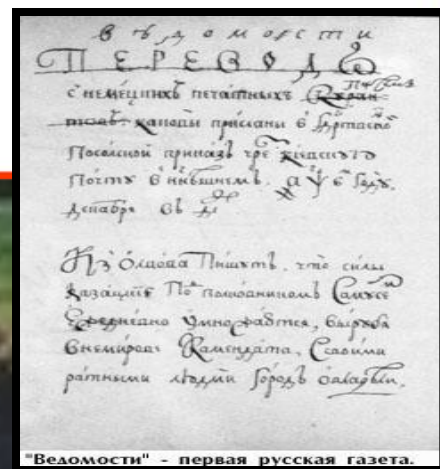 вѣдомости
ПЕРЕВОДЪ
с немецкихъ печатныхъ
каковы присланы в
Посолской приказъ чрез киевскую
Почту в нынѣшнемъ, году,
декабрѣ въ де
Из Олвова Пишутъ, что силы
казацкие По полковникомъ Самусе
умножаются, вырубя
внемирове Каменданта, Ссвоими
ратными людми городъ овладѣли.
"Ведомости" - первая русская газета.